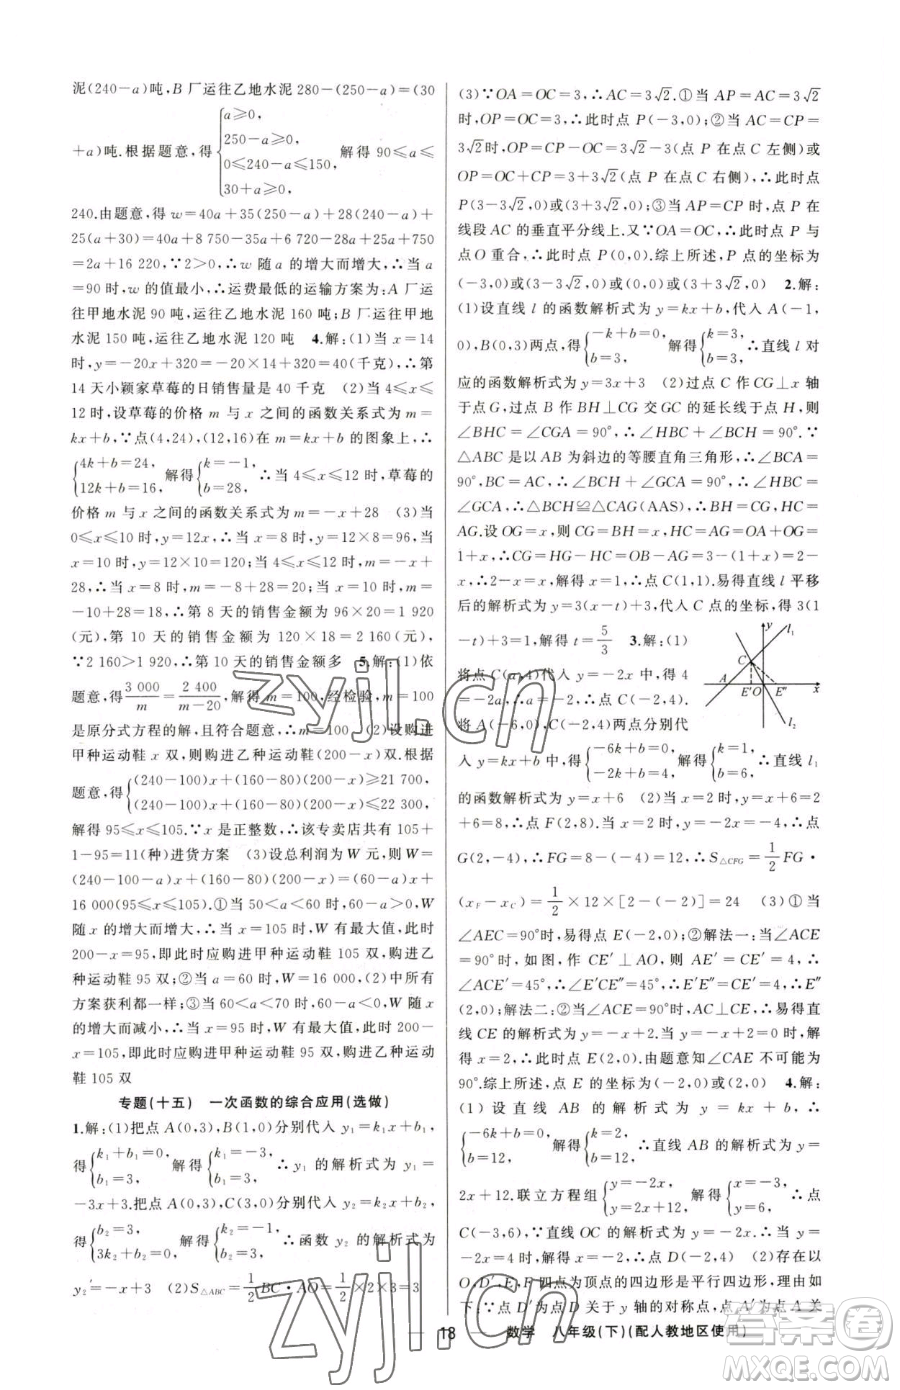 泥(240-a)吨,B厂运往乙地水泥 280-(250-a)=(30
+a)吨.根据题意,得{a≥0, 250-a≥0, 0≤240-a≤150, 30+a≥0, 解得 90≤a≤
240.由题意,得 w=40a+35(250-a)+28(240-a)+
25(a+30)=40a-35a-28a+25a+8 750+6 720+750=
2a+16 220,∵2>0,∴w 随 a 的增大而增大,∴当 a
=90 时,w 的值最小,∴运费最低的运输方案为:A 厂运
往甲地水泥 90 吨,运往乙地水泥 160 吨;B 厂运往甲地
水泥 150 吨,运往乙地水泥 120 吨 4.解:(1)当 x=14
时,y=-20x+320=-20×14+320=40(千克),∴第
14 天小颖家草莓的日销售量是 40 千克 (2)当 4≤x≤
12 时,设草莓的价格 m 与 x 之间的函数关系式为 m=
kx+b,∵点(4,24),(12,16)在 m=kx+b 的图象上,∴
{4k+b=24, 12k+b=16, 解得{k=-1, b=28, ∴当 4≤x≤12 时,草莓的
价格 m 与 x 之间的函数关系式为 m=-x+28 (3)当
0≤x≤10 时,y=12x,∴当 x=8 时,y=12×8=96,当
x=10 时,y=12×10=120;当 4≤x≤12 时,m=-x+
28,∴当 x=8 时,m=-8+28=20,当 x=10 时,m=
-10+28=18,∴第 8 天的销售金额为 96×20=1 920
(元),第 10 天的销售金额为 120×18=2 160(元),
∵2 160>1 920,∴第 10 天的销售金额多 5.解:(1)依
题意,得3 000/m=2 400/(m-20),解得 m=100,经检验,m=100
是原分式方程的解,且符合题意 (2)设购进
甲种运动鞋 x 双,则购进乙种运动鞋(200-x)双,根据
题意,得{(240-100)x+(160-80)(200-x)≥21 700, (240-100)x+(160-80)(200-x)≤22 300,
解得 95≤x≤105.∵x 是正整数,∴该专卖店共有 105+
1-95=11(种)进货方案 (3)设总利润为 W 元,则 W=
(240-100-a)x+(160-80)(200-x)=(60-a)x+
16 000(95≤x≤105).①当 50<a<60 时,60-a>0,W
随 x 的增大而增大,∴当 x=105 时,W 有最大值,此时
200-x=95,即此时应购进甲种运动鞋 105 双,购进乙
种运动鞋 95 双;②当 a=60 时,W=16 000,(2)中所有
方案获利都一样;③当 60<a<70 时,60-a<0,W 随 x
的增大而减小,∴当 x=95 时,W 有最大值,此时 200-
x=105,即此时应购进甲种运动鞋 95 双,购进乙种运动
鞋 105 双
专题(十五) 一次函数的综合应用(选做)
1.解:(1)把点 A(0,3),B(1,0)分别代入 y₁=k₁x+b₁,
得{k₁+b₁=0, b₁=3, 解得{k₁=-3, b₁=3, ∴y₁ 的解析式为 y₁=
-3x+3.把点 A(0,3),C(3,0)分别代入 y₂=k₂x+b₂,
得{b₂=3, 3k₂+b₂=0, 解得{k₂=-1, b₂=3, ∴函数 y₂ 的解析式为
y₂=-x+3 (2)S△ABC=1/2BC·AO=1/2×2×3=3
(3)∵OA=OC=3,∴AC=3√2.①当 AP=AC=3√2
时,OP=OC=3,∴此时点 P(-3,0);②当 AC=CP=
3√2时,OP=CP-OC=3√2-3(点 P 在点 C 左侧)或
OP=OC+CP=3+3√2(点 P 在点 C 右侧),∴此时点
P(3-3√2,0)或(3+3√2,0);③当 AP=CP 时,点 P 在
线段 AC 的垂直平分线上.又∵OA=OC,∴此时点 P 与
点O 重合,∴此时点 P(0,0).综上所述,点 P 的坐标为
(-3,0)或(3-3√2,0)或(3+3√2,0)或(0,0) 2.解:
(1)设直线 l 的函数解析式为 y=kx+b,代入 A(-1,
0),B(0,3)两点,得{-k+b=0, b=3, 解得{k=3, b=3, ∴直线 l 对
应的函数解析式为 y=3x+3 (2)过点 C 作 CG⊥x 轴
于点 G,过点 B 作 BH⊥CG 交 GC 的延长线于点 H,则
∠BHC=∠CGA=90°,∴∠HBC+∠BCH=90°.∵
△ABC 是以 AB 为斜边的等腰直角三角形,∴∠BCA=
90°,BC=AC,∴∠HCB+∠GCA=90°,∴∠HBC=
∠GCA,∴△BCH≌△CAG(AAS),∴BH=CG,CH=
AG.设 OG=x,则 CG=BH=x,CH=AG=OA+OG=
1+x,∴CG=HG-HC=OB-AG=3-(1+x)=2-
x,∴2-x=x,解得 x=1,∴点 C(1,1).易得直线 l 平移
后的解析式为 y=3(x-t)+3,代入 C 点的坐标,得 3(1
-t)+3=1,解得 t=5/3 3.解:(1)
将点 C(a,4)代入 y=-2x 中,得 4
=-2a,∴a=-2,∴点 C(-2,4).
将 A(-6,0),C(-2,4)两点分别代
入 y=kx+b 中,得{-6k+b=0, -2k+b=4, 解得{k=1, b=6, ∴直线 l₁
的函数解析式为 y=x+6 (2)当 x=2 时,y=x+6=2
+6=8,∴点 F(2,8).当 x=2 时,y=-2x=-4,∴点
G(2,-4),∴FG=8-(-4)=12,∴S△CFG=1/2FG·
(xF-xC)=1/2×12×[2-(-2)]=24 (3)①当
∠AEC=90°时,易得点 E(-2,0);②解法一:当∠ACE
=90°时,如图,作 CE′⊥AO,由题意,得 AE′=CE′=4,
∴∠CAE′=45°,∴∠CE″A=45°,∴E′E″=CE′=4,∴E″
(2,0);解法二:②当∠ACE=90°时,AC⊥CE,∴易得直
线 CE 的解析式为 y=-x+2,∴当 y=-x+2=0 时,
解得 x=2,∴此时点 E(2,0).由题意知∠CAE 不可能为
90°.综上所述,点 E 的坐标为(-2,0)或(2,0) 4.解:
(1)设直线 AB 的解析式为 y=kx+b,∴
{-6k+b=0, b=12, 解得{k=2, b=12, ∴直线 AB 的解析式为 y=
2x+12.联立方程组{y=-2x, y=2x+12, 解得{x=-3, y=6, ∴点
C(-3,6),∵直线 OC 的解析式为 y=-2x,∴当 y=
-2x=4 时,解得 x=-2,∴点 D(-2,4) (2)存在以
O,D′,E,F 为顶点的四边形是平行四边形.理由如
下:∵点 D′为点 D 关于 y 轴的对称点,点 A′为点 A 关
y l₁ C A E′ O E″ x l₂
18 数学 八年级(下)(配人教地区使用)
zyjl.cn
zyjl.cn
作业帮
MXQE.COM